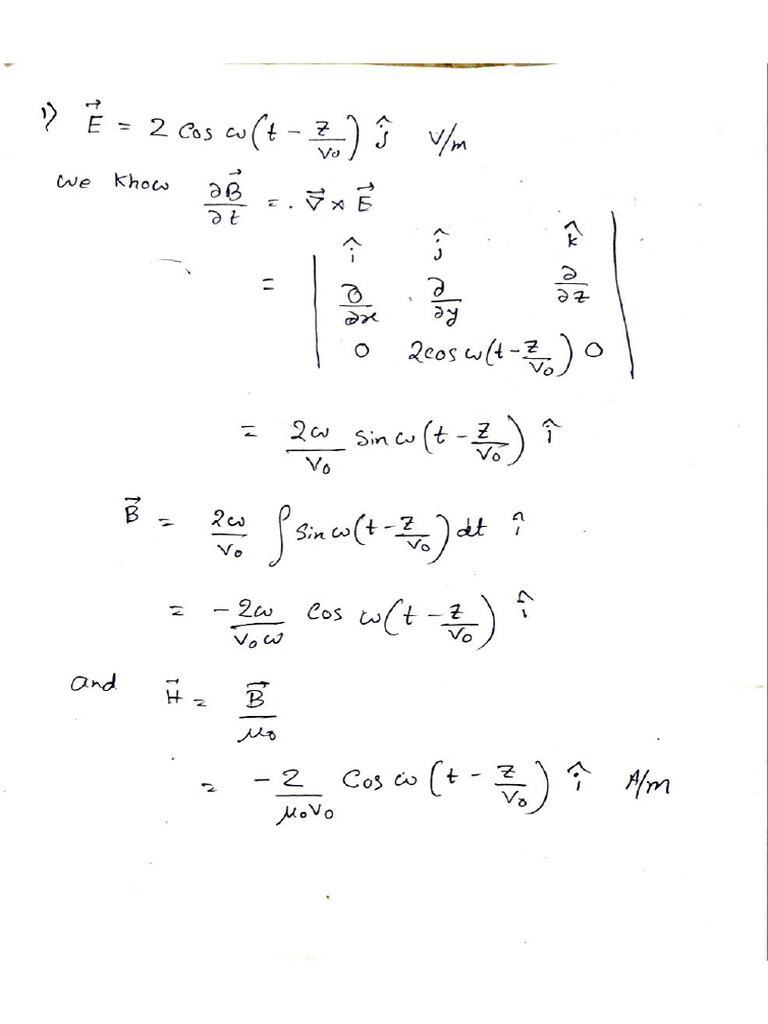 1) E⃗ = 2 Cos ω(t - z/v₀) ĵ V/m
we know ∂B⃗/∂t = . ∇⃗ × E⃗
= | î ĵ k̂
∂/∂x . ∂/∂y ∂/∂z
0 2cos ω(t - z/v₀) 0 |
= 2ω/v₀ sin ω(t - z/v₀) î
B⃗ = 2ω/v₀ ∫ sin ω(t - z/v₀) dt î
= -2ω/v₀ω Cos ω(t - z/v₀) î
and H⃗ = B⃗/μ₀
= -2/μ₀v₀ Cos ω(t - z/v₀) î A/m